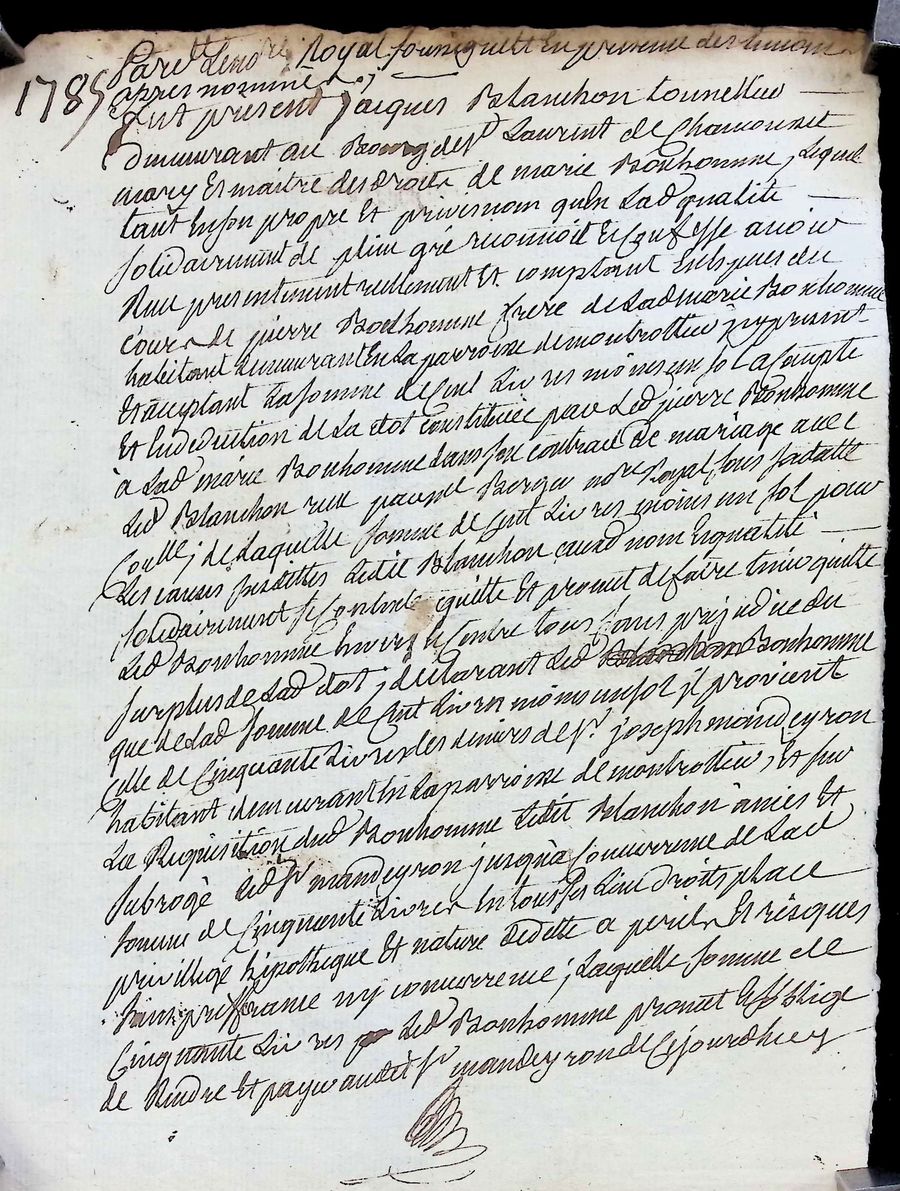 1785
Pard^t Le no^re Royal soussigné et En presence des temoins
apres nommés
fut present jacques Blanchon tounellier
demeurant au Bourg de S^t Laurent de Chamousset
mary Et maitre des droits de marie Bonhomme, Lequel
tant En son propre Et privé nom qu'En Lad qualité
solidairement de plein gré reconnoit Et Confesse avoir
Reçu presentement reellement Et comptant En Especes du
Cours de pierre Bonhomme frere de Lad marie Bonhomme
habitant demeurant En La parroisse de montrottier present
Et acceptant La somme de Cent Livres moins un sol a Compte
Et En deduction de La dot Constituée par Led pierre Bonhomme
à Lad marie Bonhomme dans son contract de mariage avec
Led Blanchon reçu par m^e Berger no^re Royal sous sa datte
Coullé; de Laquelle somme de Cent Livres moins un sol pour
Les causes susdittes Ledit Blanchon auxd nom Et qualité
solidairement se Contente quitte Et promet de faire tenir quitte
Led Bonhomme Envers Et Contre tous sans prejudice du
surplus de Lad dot; declarant Led Bonhomme
que de Lad somme de Cent Livres moins un sol il provient
celle de Cinquante Livres des deniers de S^r joseph mandeyron
habitant demeurant En La parroisse de montrottier, Et sur
La Requisition dud Bonhomme Ledit Blanchon a mis Et
subrogé Led S^r mandeyron jusqu'à Concurrence de Lad
somme de Cinquante Livres En tous ses Lieu droits place
privillege hipotheque Et nature de dette a perils Et risques
sans prefferance ny concurrence; Laquelle somme de
Cinquante Livres Led Bonhomme promet Et s'oblige
de Rendre Et payer audit S^r mandeyron de Cejourdhuy